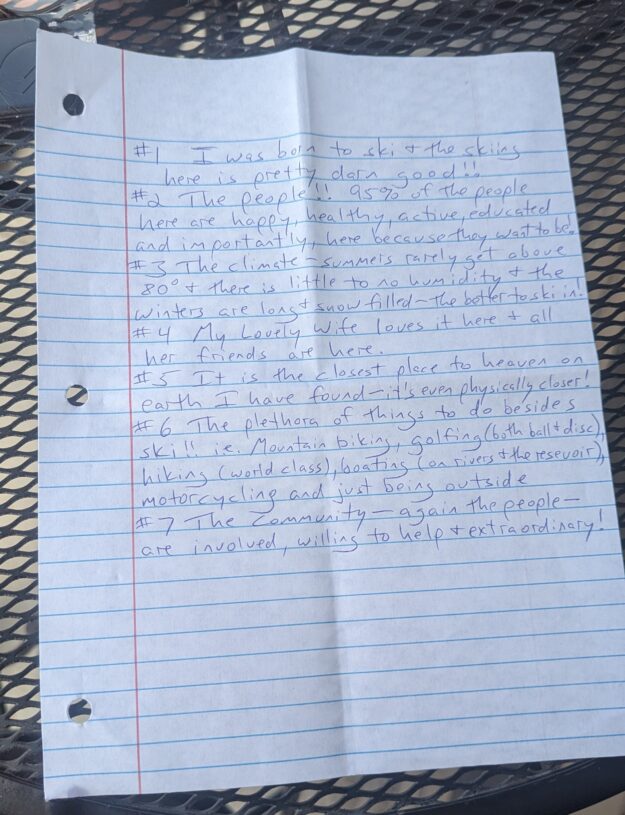 #1 I was born to ski + the skiing
here is pretty darn good!!
#2 The people!! 95% of the people
here are happy, healthy, active, educated
and importantly, here because they want to be.
#3 The climate - summers rarely get above
80° + there is little to no humidity + the
winters are long + snow filled - the better to ski in!
#4 My Lovely Wife loves it here + all
her friends are here.
#5 It is the closest place to heaven on
earth I have found - it's even physically closer!
#6 The plethora of things to do besides
ski!! ie. Mountain biking, golfing (both ball + disc),
hiking (world class), boating (on rivers + the resevoir),
motorcycling and just being outside
#7 The Community - again the people -
are involved, willing to help + extraordinary!